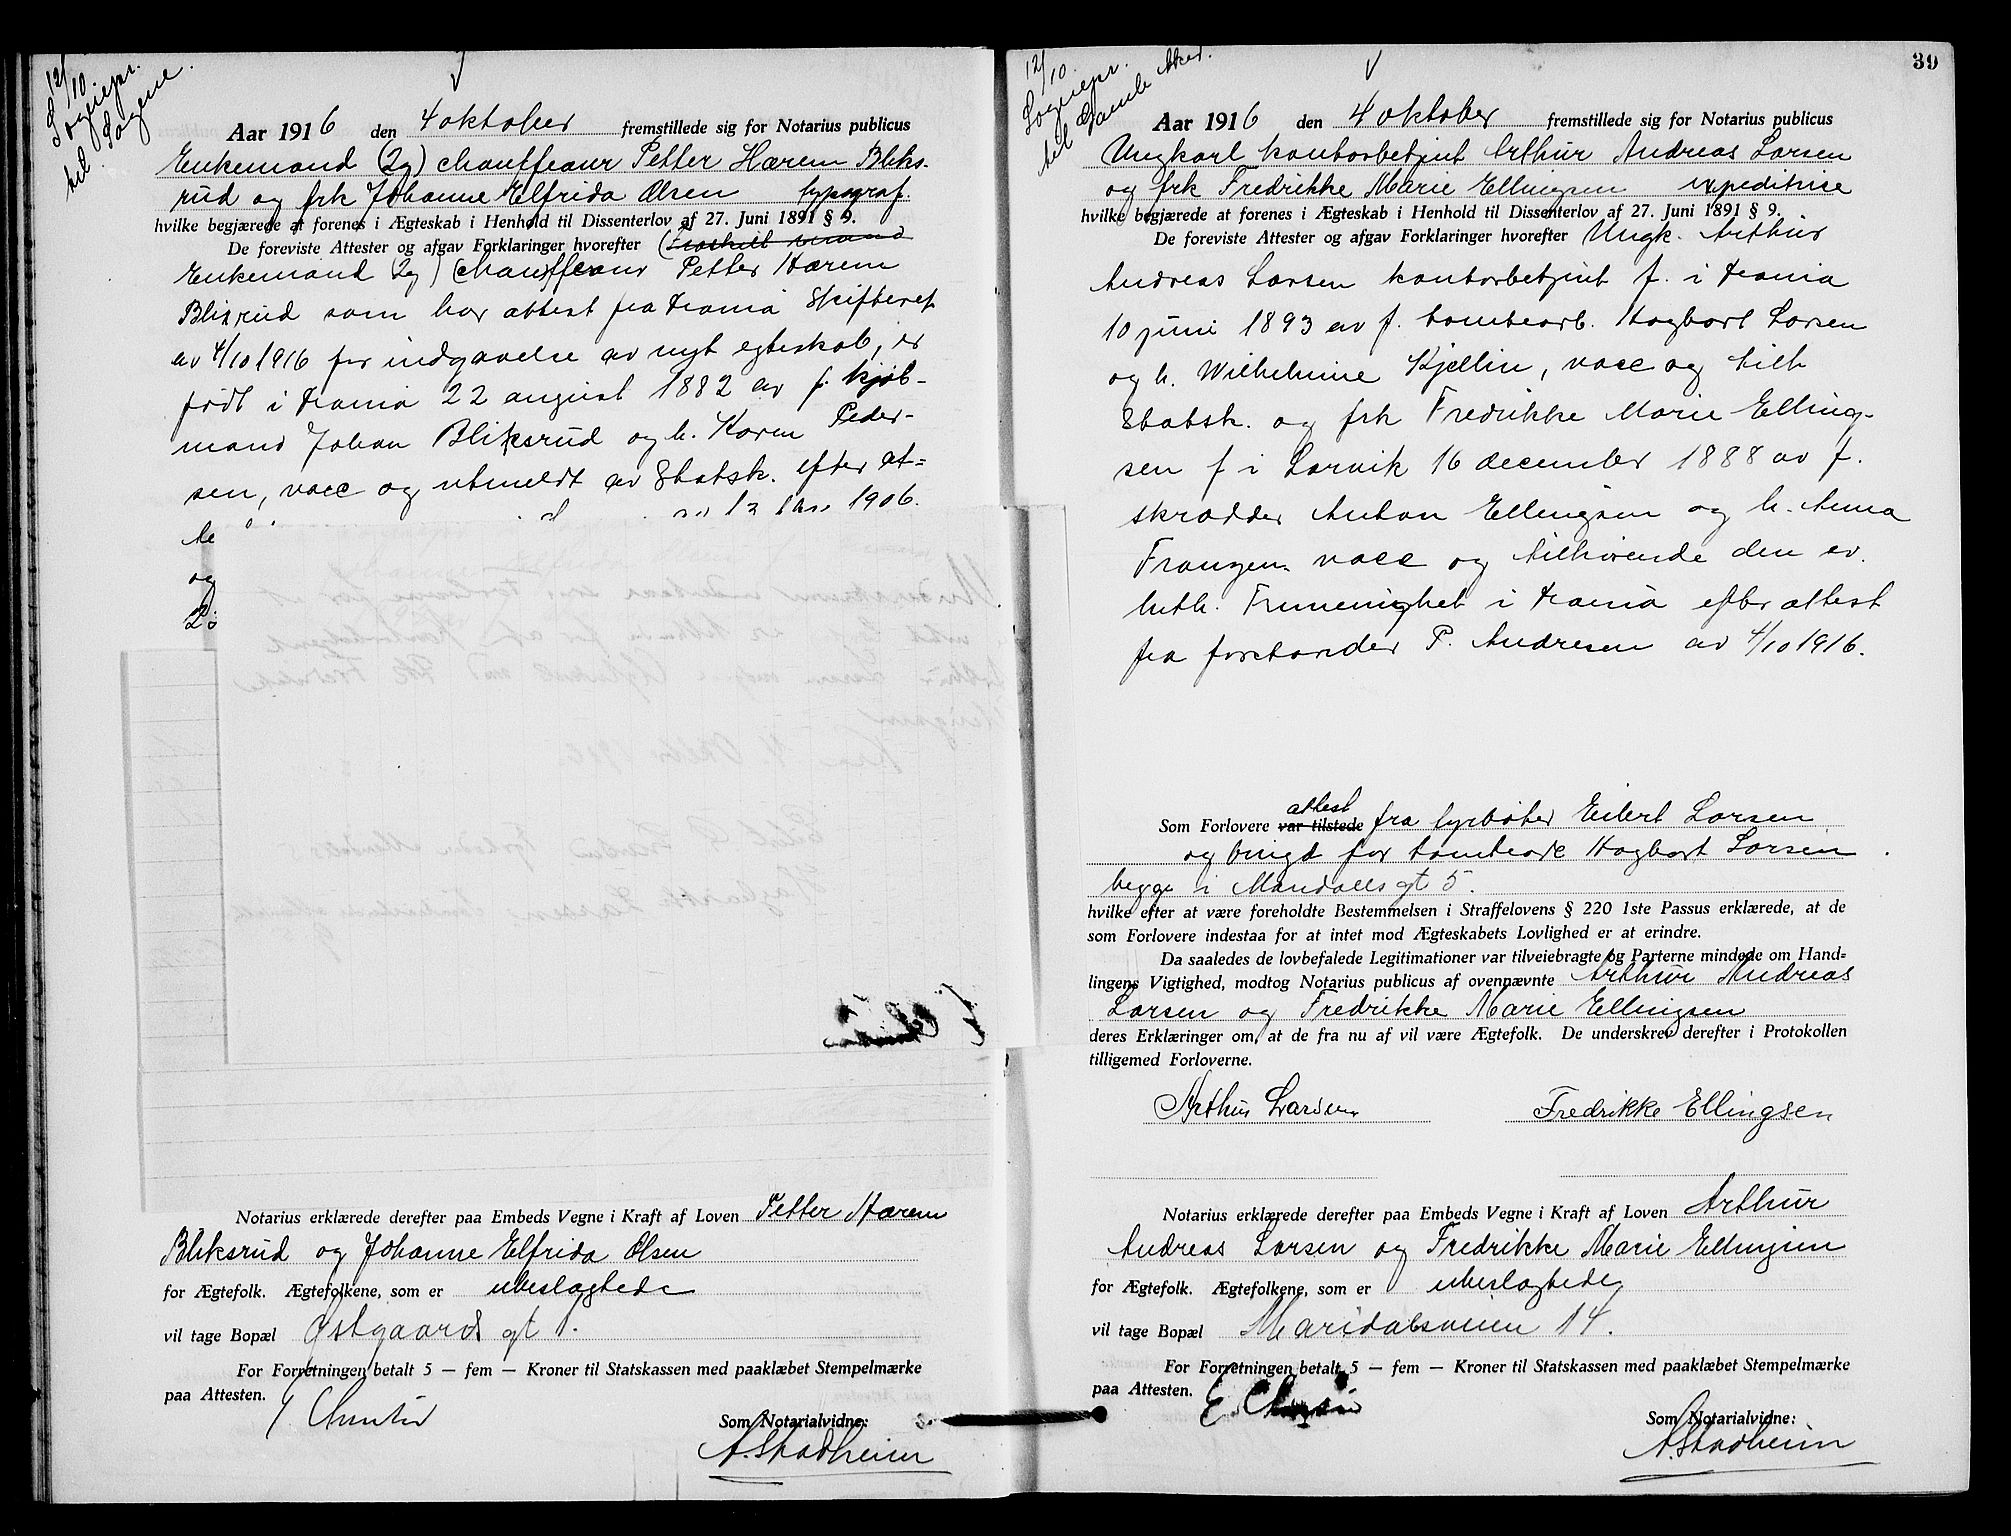 12/10
Sognepr.
til Sagene.
Aar 1916 den 4 oktober fremstillede sig for Notarius publicus
Enkemand (2g) chauffeaur Petter Hærem Bliks-
rud og frk Johanne Elfrida Olsen typograf.
hvilke begjærede at forenes i Ægteskab i Henhold til Dissenterlov af 27. Juni 1891 § 9.
De foreviste Attester og afgav Forklaringer hvorefter
Enkemand (2g) chauffeaur Petter Hærem
Bliksrud som har attest fra Krania Skifteret
av 4/10 1916 for indgaaelse av nyt egteskab, er
født i Krania 22 august 1882 av f. kjøb-
mand Johan Bliksrud og h. Karen Peder-
sen, vacc og utmeldt av Statsk. efter at-
1906.
og
Notarius erklærede derefter paa Embeds Vegne i Kraft af Loven Petter Hærem
Bliksrud og Johanne Elfrida Olsen
for Ægtefolk. Ægtefolkene, som er ubeslagtede
vil tage Bopæl Østgaards gt 1.
For Forretningen betalt 5 — fem — Kroner til Statskassen med paaklæbet Stempelmærke
paa Attesten.
Som Notarialvidne:
A. Stadheim
39
12/10.
Sognepr.
til Gamle Aker.
Aar 1916 den 4 oktober fremstillede sig for Notarius publicus
Ungkarl kontorbetjent Arthur Andreas Larsen
og frk Fredrikke Marie Ellingsen expeditrise
hvilke begjærede at forenes i Ægteskab i Henhold til Dissenterlov af 27. Juni 1891 § 9.
De foreviste Attester og afgav Forklaringer hvorefter Ungk. Arthur
Andreas Larsen kontorbetjent f. i Krania
10 juni 1893 av f. tomtearb. Hagbart Larsen
og h. Wilhelmine Kjellin, vacc og tilh
Statsk. og frk Fredrikke Marie Elling-
sen f i Larvik 16 december 1888 av f.
skrædder Anton Ellingsen og h. Anna
Franzen. vacc og tilhørende den ev.
luth. Frimenighet i Krania efter attest
fra forstander P. Andresen av 4/10 1916.
Som Forlovere var tilstede attest fra fyrbøter Eilert Larsen
og brugd for tomtearb Hagbart Larsen
begge i Mandalls gt 5.
hvilke efter at være foreholdte Bestemmelsen i Straffelovens § 220 1ste Passus erklærede, at de
som Forlovere indestaa for at intet mod Ægteskabets Lovlighed er at erindre.
Da saaledes de lovbefalede Legitimationer var tilveiebragte og Parterne mindede om Hand-
lingens Vigtighed, modtog Notarius publicus af ovennævnte Arthur Andreas
Larsen og Fredrikke Marie Ellingsen
deres Erklæringer om, at de fra nu af vil være Ægtefolk. De underskrev derefter i Protokollen
tilligemed Forloverne.
Arthur Larsen Fredrikke Ellingsen
Notarius erklærede derefter paa Embeds Vegne i Kraft af Loven Arthur
Andreas Larsen og Fredrikke Marie Ellingsen
for Ægtefolk. Ægtefolkene, som er ubeslagtede
vil tage Bopæl Maridalsveien 14.
For Forretningen betalt 5 — fem — Kroner til Statskassen med paaklæbet Stempelmærke
paa Attesten.
Som Notarialvidne:
A. Stadheim